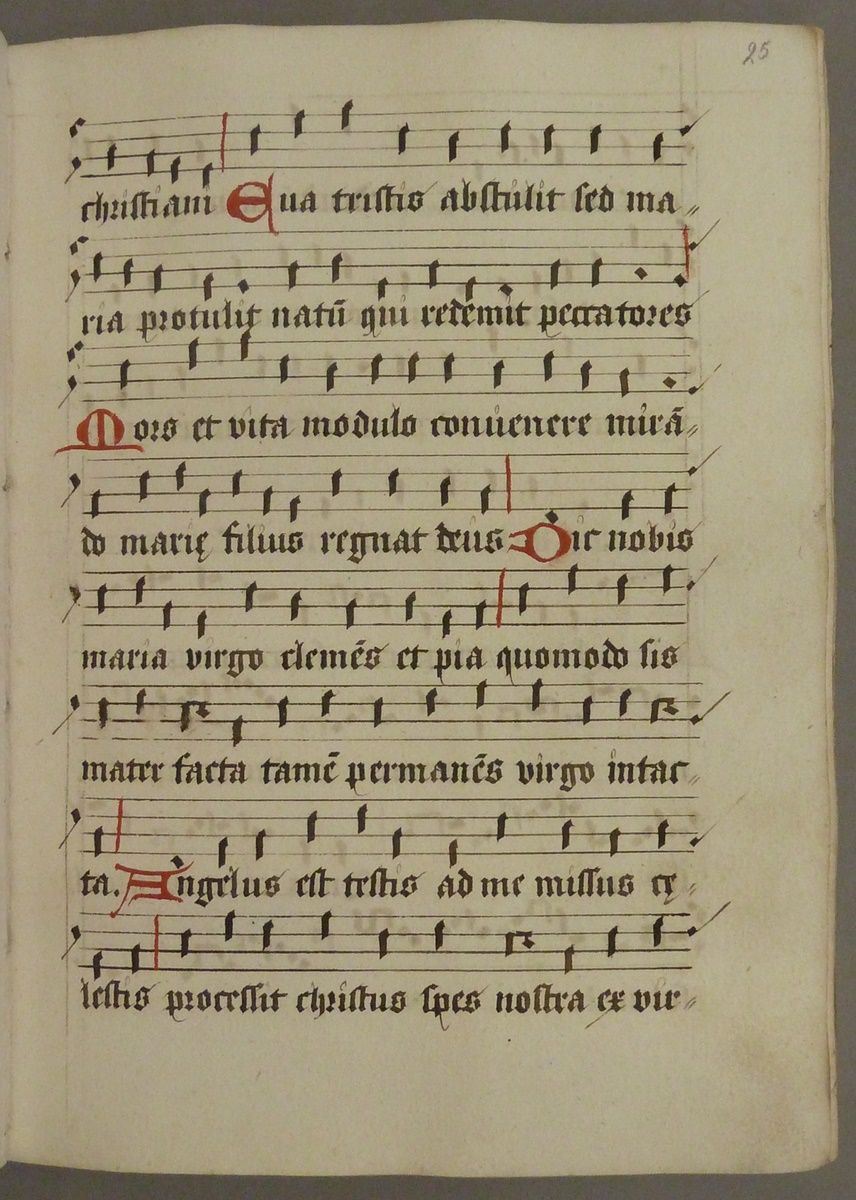 25
christiani Eua tristis abstulit sed ma〃
ria protulit natū qui redemit peccatores
Mors et vita modulo conuenere mirā〃
do marię filius regnat deus Dic nobis
maria virgo clemēs et pia quomodo sis
mater facta tamē permanēs virgo intac〃
ta. Angelus est testis ad me missus cę〃
lestis processit christus spes nostra ex vir〃